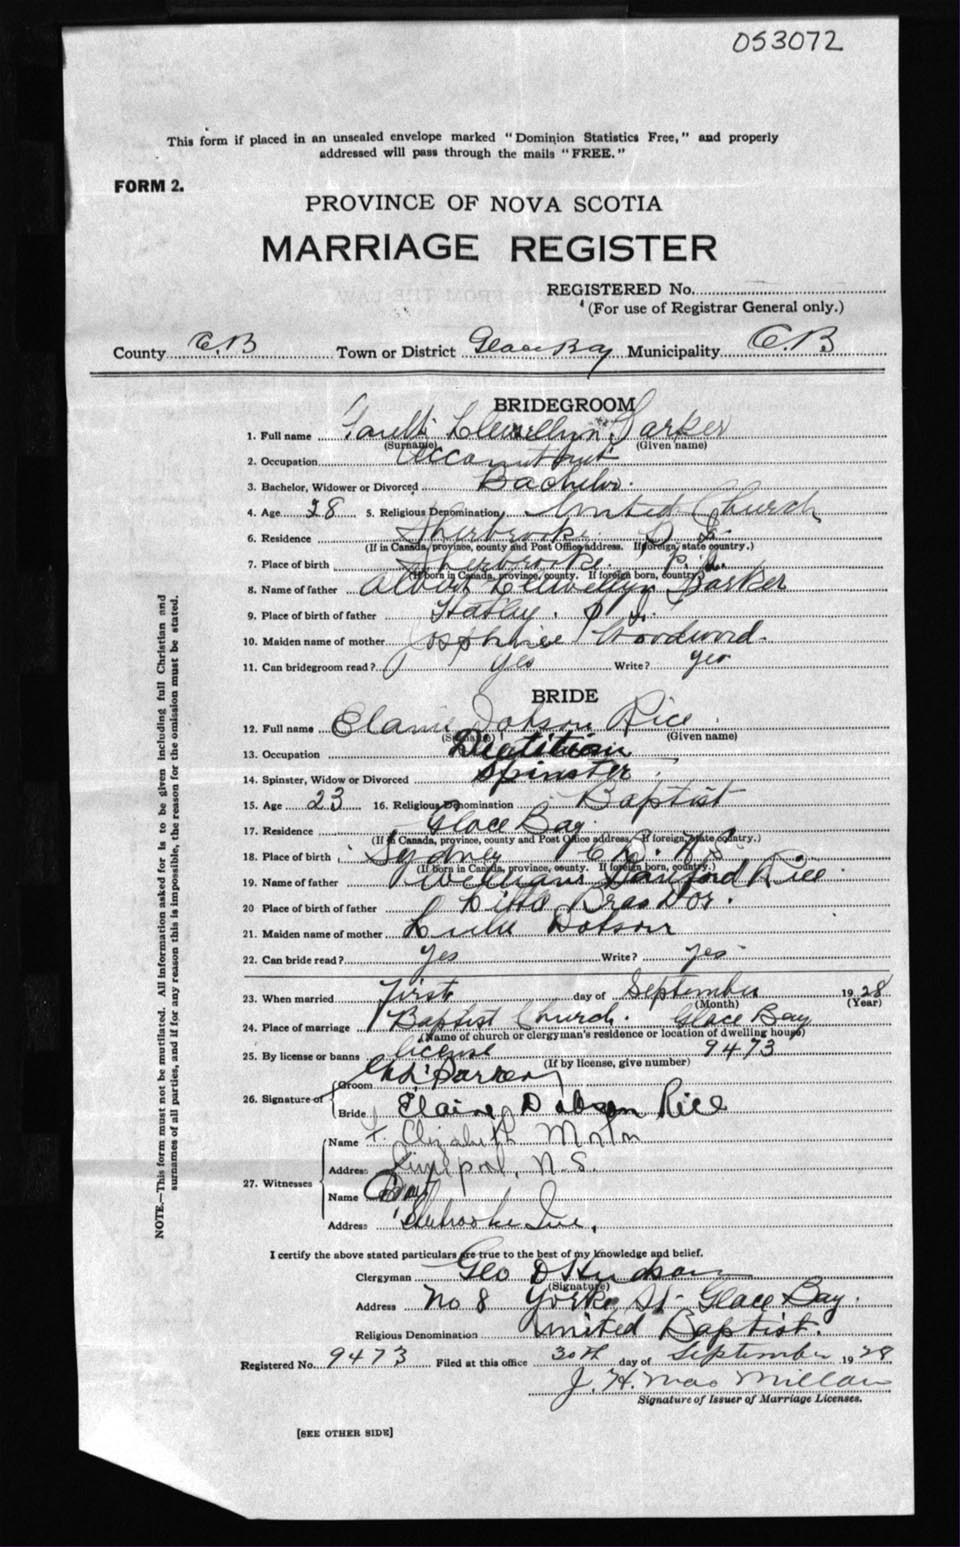 053072
This form if placed in an unsealed envelope marked "Dominion Statistics Free," and properly
addressed will pass through the mails "FREE."
FORM 2.
PROVINCE OF NOVA SCOTIA
MARRIAGE REGISTER
REGISTERED No.
(For use of Registrar General only.)
County C.B Town or District Glace Bay Municipality C.B
BRIDEGROOM
1. Full name Llewellyn Parker
(Surname) (Given name)
2. Occupation Accountant
3. Bachelor, Widower or Divorced Bachelor.
4. Age 28 5. Religious Denomination United Church
6. Residence Sherbrooke P.Q.
(If in Canada, province, county and Post Office address. If foreign, state country.)
7. Place of birth Sherbrooke. P.Q.
(If born in Canada, province, county. If foreign born, country.)
8. Name of father Albert Llewellyn Parker
9. Place of birth of father Hatley. P.Q.
10. Maiden name of mother Josephine Woodward
11. Can bridegroom read? yes Write? yes
BRIDE
12. Full name Elaine Dobson Rice
(Surname) (Given name)
13. Occupation Dietitian
14. Spinster, Widow or Divorced Spinster
15. Age 23 16. Religious Denomination Baptist
17. Residence Glace Bay.
(If in Canada, province, county and Post Office address. If foreign, state country.)
18. Place of birth Sydney C.B. N.S.
(If born in Canada, province, county. If foreign born, country.)
19. Name of father William Rice
20 Place of birth of father Little Bras Dor.
21. Maiden name of mother Lulu Dobson
22. Can bride read? yes Write? yes
23. When married first day of September 1928
(Month) (Year)
24. Place of marriage Baptist Church. Glace Bay
(Name of church or clergyman's residence or location of dwelling house)
25. By license or banns license 9473
(If by license, give number)
26. Signature of Groom Parker
Bride Elaine Dobson Rice
27. Witnesses Name F. Elizabeth
Address Liverpool, N.S.
Name
Address Sherbrooke Que.
I certify the above stated particulars are true to the best of my knowledge and belief.
Clergyman Geo D Hudson
(Signature)
Address No 8 Yorke St. Glace Bay.
Religious Denomination United Baptist.
Registered No. 9473 Filed at this office 30th day of September 1928
J. H. MacMillan
Signature of Issuer of Marriage Licenses.
[SEE OTHER SIDE]
NOTE.—This form must not be mutilated. All information asked for is to be given including full Christian and
surnames of all parties, and if for any reason this is impossible, the reason for the omission must be stated.